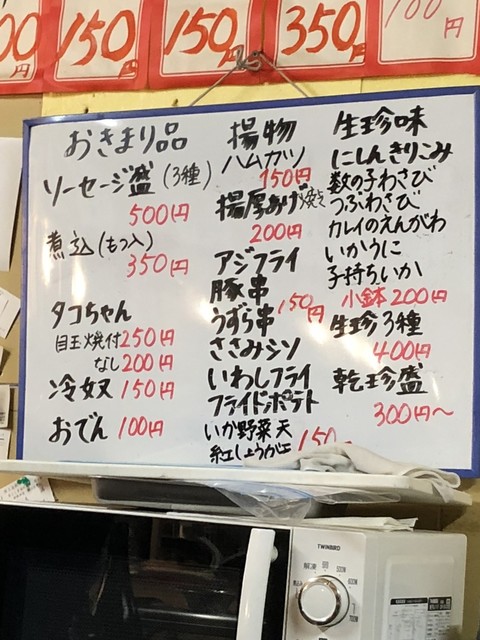 00円
150円
150円
350円
100円
おきまり品
ソーセージ盛(3種)
500円
煮込(もつ入)
350円
タコちゃん
目玉焼付250円
なし200円
冷奴 150円
おでん 100円
揚物
ハムカツ
150円
揚厚あげ焼き
200円
アジフライ
豚串
150円
うずら串
ささみシソ
いわしフライ
フライドポテト
いか野菜天
紅しょうが天
150
生珍味
にしんきりこみ
数の子わさび
つぶわさび
カレイのえんがわ
いかうに
子持ちいか
小鉢200円
生珍3種
400円
乾珍盛
300円〜
TWINBIRD